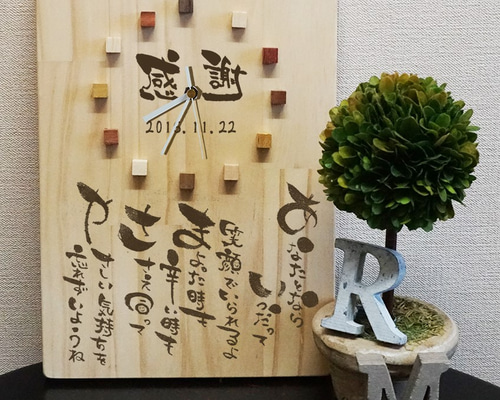 感謝
2015.11.22
あなたとなら
いつだって
笑顔でいられるよ
まよった時も
辛い時も
ささえ合って
やさしい気持ちを
忘れずいようね
R
M